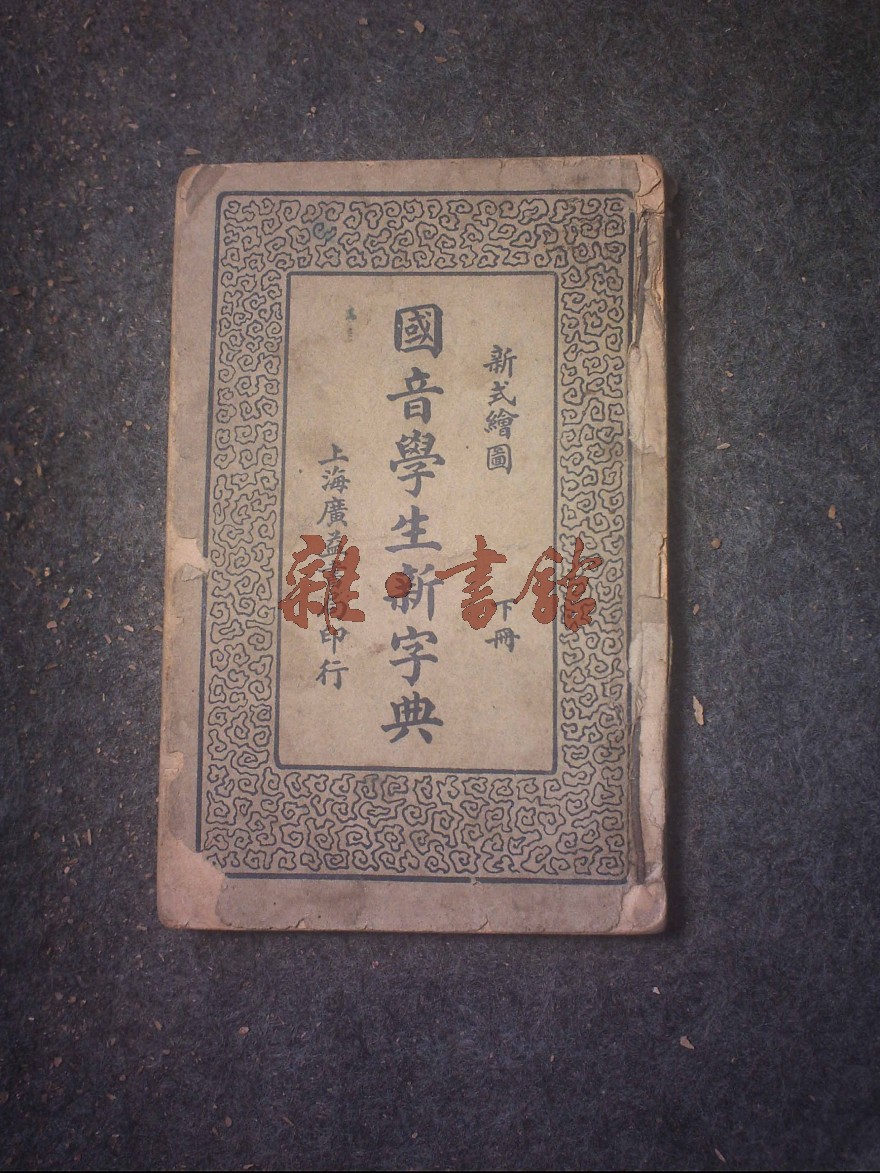 新式繪圖
下冊
國音學生新字典
上海廣益書局印行
雜·書館